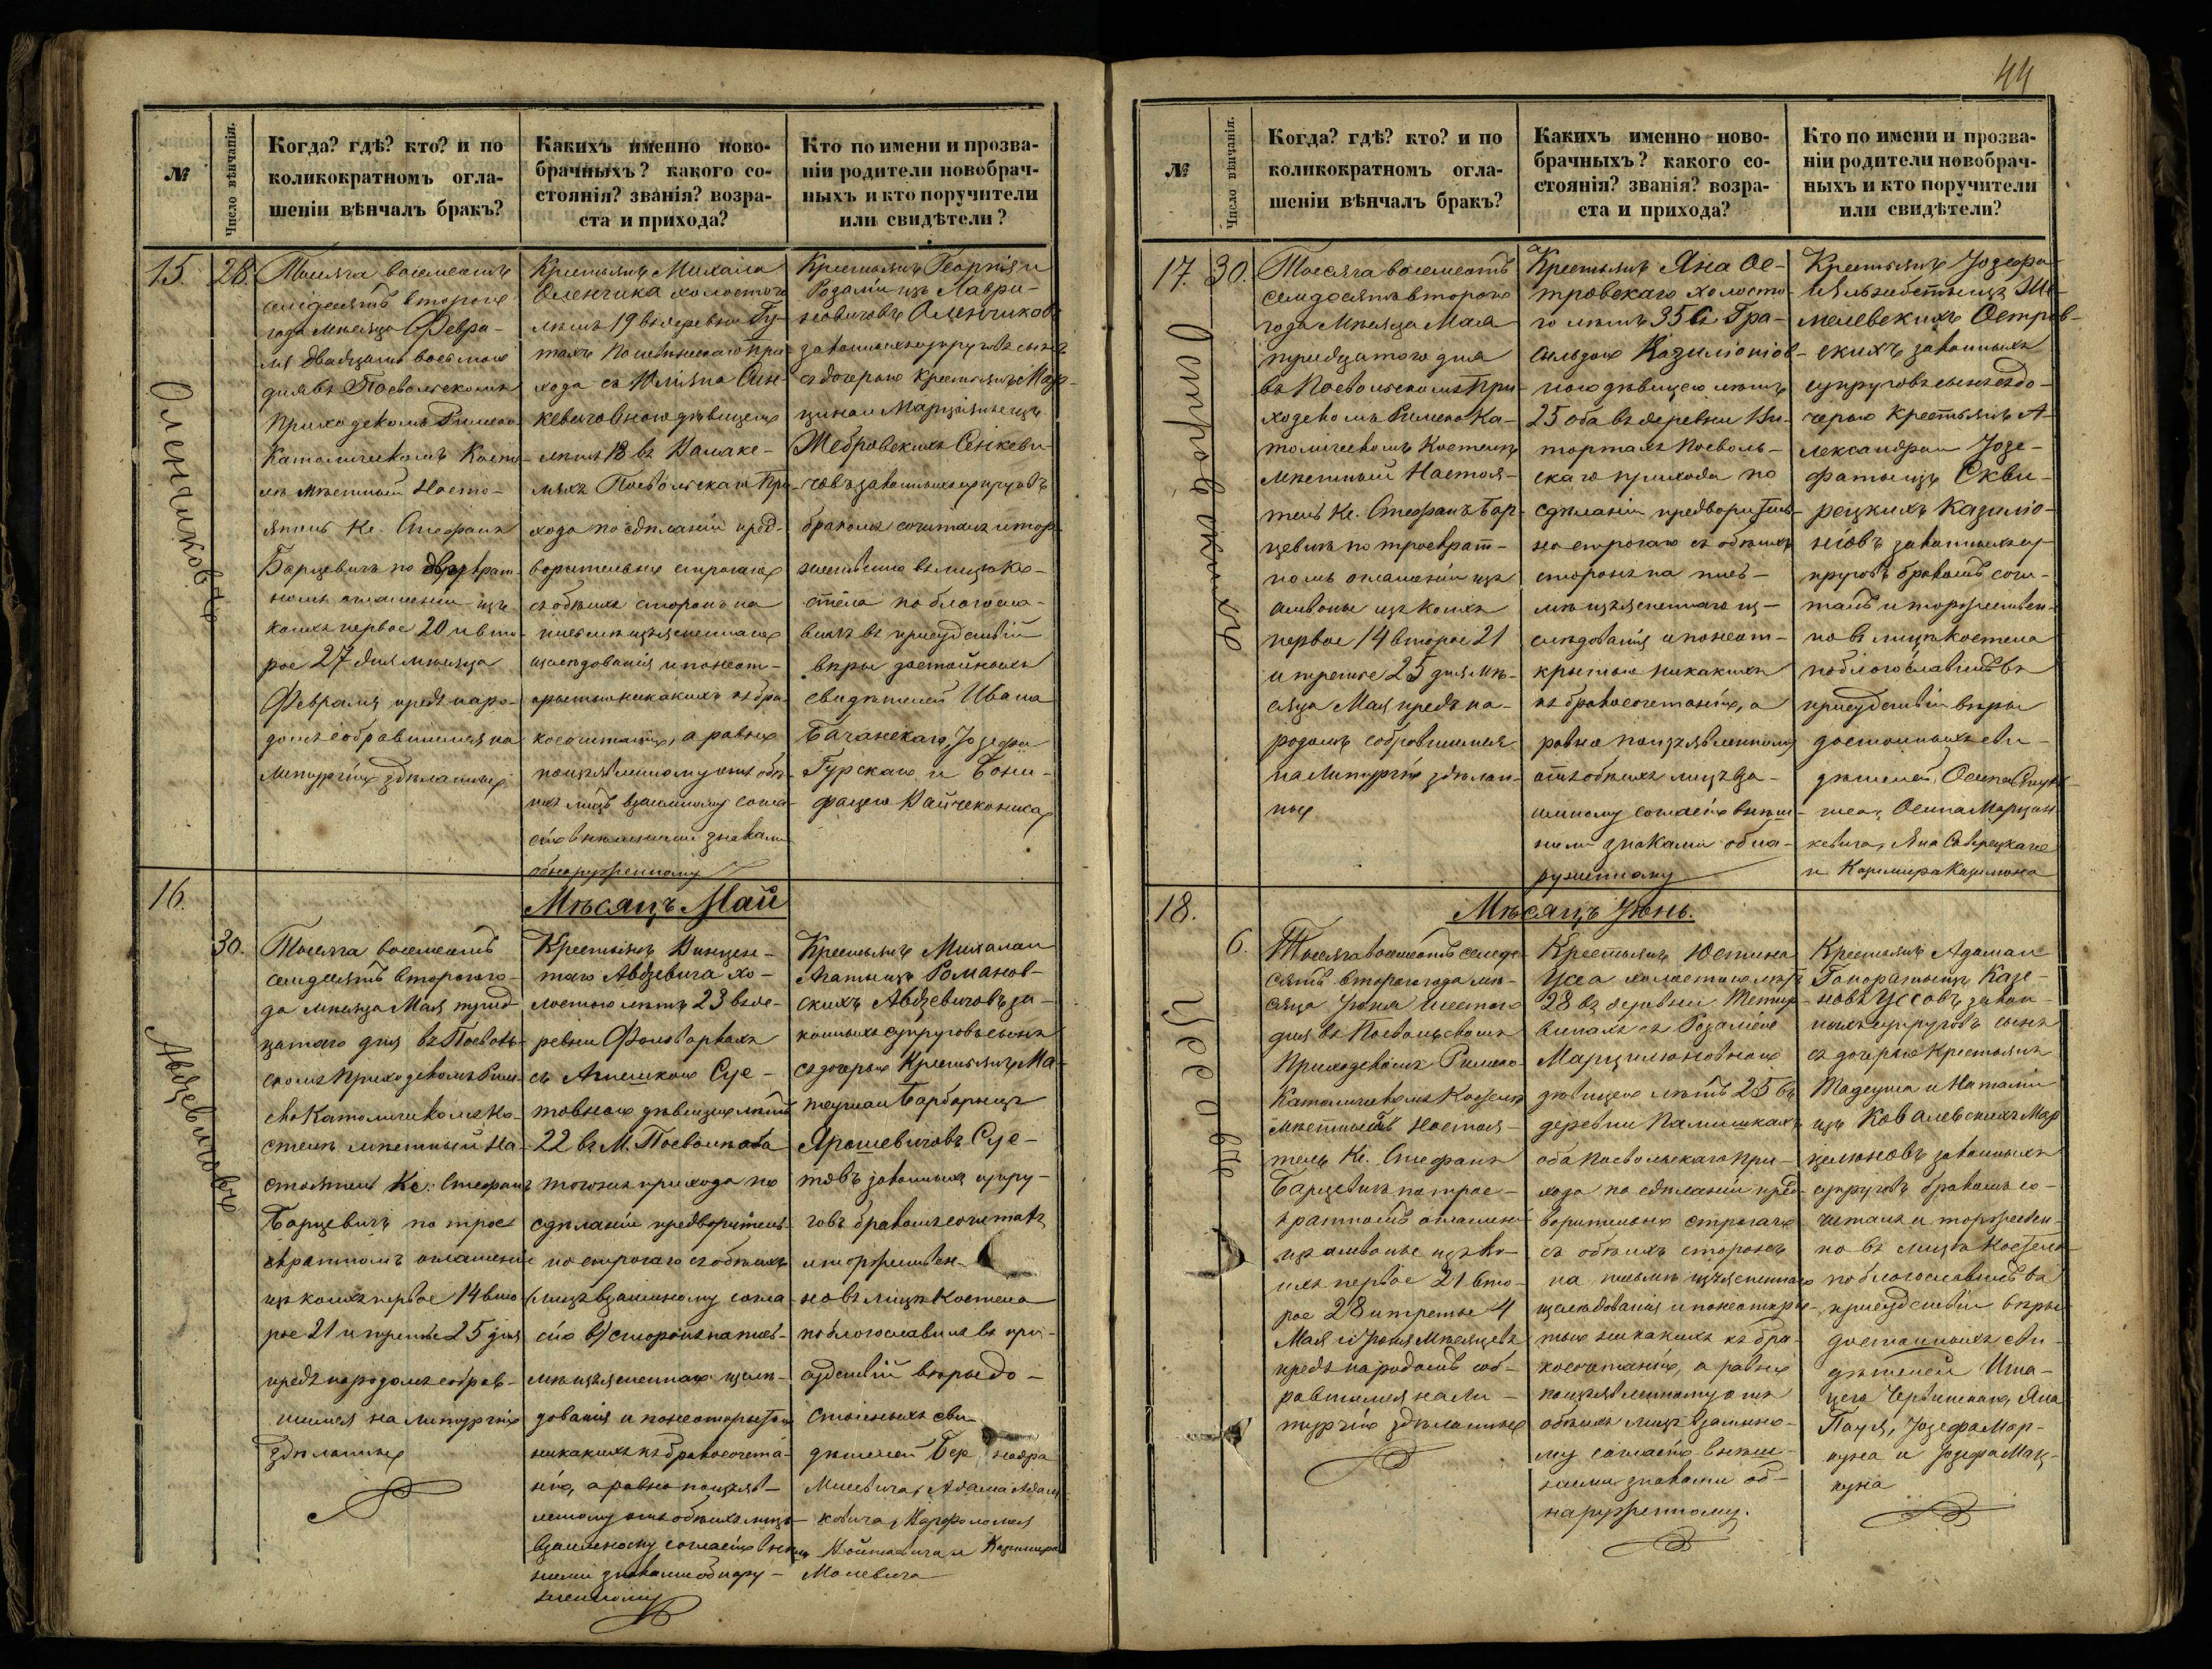 44
№
Число вѣнчанія.
Когда? гдѣ? кто? и по
коликократномъ огла-
шеніи вѣнчалъ бракъ?
Какихъ именно ново-
брачныхъ? какого со-
стоянія? званія? возра-
ста и прихода?
Кто по имени и прозва-
ніи родители новобрач-
ныхъ и кто поручители
или свидѣтели?
15.
28.
Оленчиковы
Тысяча восемсотъ
семдесятъ второго
года мѣсяца Февра-
ля двадцать восьмаго
дня въ Посвольскомъ
Приходскомъ Римско
Католическомъ Косте-
лѣ мѣстный Насто-
ятель Кс. Стефанъ
Барцевичъ по двукрат-
номъ оглашеніи изъ
коихъ первое 20 и вто-
рое 27 дня мѣсяца
Февраля предъ наро-
домъ собравшимся на
Литургію здѣланныхъ
Крестьянъ Михаила
Оленчика холостого
лѣтъ 19 въ деревни Гу-
тахъ При-
хода съ Юліяна Син-
кевичовною дѣвицею
лѣтъ 18 въ
Посвольскаго При-
хода по сдѣланіи пред-
варительно строгаго
съ обѣихъ сторонъ на
письмѣ изъясненнаго
изслѣдованія и понеот-
крытію никакихъ къ бра-
косочитанію, а равно
поизъявленному отъ обѣ-
ихъ лицъ взаимному согла-
сію внѣшними знаками
обнаруженному
Крестьянъ Георгія и
Розаліи изъ Лаври-
новичовъ Оленчиковъ
законныхъ супруговъ сынъ
съ дочерью Крестьянъ Мар-
цина и Марціянны изъ
Жебровскихъ Синкеви-
човъ законныхъ супруговъ
бракомъ сочиталъ и торж-
жественно въ лицѣ Ко-
стёла поблагосла-
вилъ въ присудствіи
вѣры достойныхъ
свидѣтелей Ивана
Бачанскаго, Іозефа
Гурскаго и Бони-
фацего
16.
Мѣсяцъ Май
30.
Авдзевичовы
Тысяча восемсотъ
семдесятъ второго го-
да мѣсяца Мая трид-
цатаго дня въ Посволь-
скомъ Приходскомъ Рим-
ско Католическомъ Ко-
стелѣ мѣстный На-
стоятель Кс. Стефанъ
Барцевичъ по трое
кратномъ оглашеніи
изъ коихъ первое 14 вто-
рое 21 и третье 25 дня
предъ народомъ собрав-
шимся на Литургію
здѣланныхъ
Крестьянъ Винцен-
таго Авдзевича хо-
лостого лѣтъ 23 въ де-
ревни Фольваркахъ
съ Агнешкою Сце-
товною дѣвицею лѣтъ
22 въ М. Посволи оба
тогожъ прихода по
сдѣланіи предваритель-
но строгаго съ обѣихъ
(лицъ взаимному согла-
сію в) сторонъ на пись-
мѣ изъясненнаго изслѣ-
дованія и понеоткрытію
никакихъ къ бракосочета-
нію, а равно поизъяв-
ленному отъ обѣихъ лицъ
взаимному согласію внѣш-
ними знаками обнару-
женному
Крестьянъ Михала и
Агаты изъ Романов-
скихъ Авдзевичовъ за-
конныхъ супруговъ сынъ
съ дочерью Крестьянъ Ма-
теуша и Барбары изъ
Ярошевичовъ Сце-
товъ законныхъ супру-
говъ бракомъ сочиталъ
и торжествен-
но въ лицѣ Костела
поблагославилъ въ при-
судствіи вѣры до-
стойныхъ сви-
дѣтелей Бернарда
Мисевича, Адама Адам-
ковича, Варфоломея
Войткевича и Казимира
Малевича
№
Число вѣнчанія.
Когда? гдѣ? кто? и по
коликократномъ огла-
шеніи вѣнчалъ бракъ?
Какихъ именно ново-
брачныхъ? какого со-
стоянія? званія? возра-
ста и прихода?
Кто по имени и прозва-
ніи родители новобрач-
ныхъ и кто поручители
или свидѣтели?
17.
30.
Островскихъ
Тысяча восемсотъ
семдесятъ второго
года Мѣсяца Мая
тридцатого дня
въ Посвольскомъ При-
ходскомъ Римско Ка-
толическомъ Костелѣ
мѣстный Настоя-
тель Кс. Стефанъ Бар-
цевичъ по троекрат-
номъ оглашеніи изъ
амвоны изъ коихъ
первое 14 второе 21
и третье 25 дня мѣ-
сяца Мая предъ на-
родомъ собравшимся
на Литургію здѣлан-
ныхъ
Крестьянъ Яна Ос-
тровскаго холосто-
го лѣтъ 35 съ Гра-
сильдою Казиліонов-
ною дѣвицею лѣтъ
25 оба въ деревни Ви-
торталъ Посволь-
скаго прихода по
сдѣланіи предваритель-
но строгаго съ обѣихъ
сторонъ на пись-
мѣ изъясненнаго из-
слѣдованія и понеот-
крытію никакихъ
къ бракосочетанію, а
равно поизъявленному
отъ обѣихъ лицъ вза-
имному согласію внѣш-
ними знаками обна-
руженному
Крестьянъ Іозефа
и Эльзабеты изъ Ше-
мелевскихъ Остров-
скихъ законныхъ
супруговъ сынъ съ до-
черью Крестьянъ А-
лександра и Іозе-
фаты изъ Скви-
рецкихъ Казиліо-
новъ законныхъ су-
пруговъ бракомъ сочи-
талъ и торжествен-
но въ лицѣ костела
поблагославилъ въ
присудствіи вѣры
достойныхъ сви-
дѣтелей, Осипа
Осипа Марцин-
кевича, Яна
и Казимира Казилюна
18.
Мѣсяцъ Іюнь.
6.
Уссовы
Тысяча восемсотъ семде-
сятъ второго года мѣ-
сяца Іюня шестого
дня въ Посвольскомъ
Приходскомъ Римско
Католическомъ Костелѣ
мѣстный Настоя-
тель Кс. Стефанъ
Барцевичъ по трое-
кратномъ оглашеніи
изъ амвоны изъ ко-
ихъ первое 21 вто-
рое 28 и третье 4
Мая и Іюня Мѣсяцевъ
предъ народомъ соб-
равшимся на Ли-
тургію здѣланныхъ
Крестьянъ Юстина
Усса холостого лѣтъ
28 въ деревни
съ Розаліею
Марцилюновною
дѣвицею лѣтъ 25 въ
деревни Палишкахъ
оба Посвольскаго При-
хода по сдѣланіи пред-
варительно строгаго
съ обѣихъ сторонъ
на письмѣ изъясненнаго
изслѣдованія и понеоткры-
тію никакихъ къ бра-
косочетанію, а равно
поизъявленному отъ
обѣихъ лицъ взаимно-
му согласію внѣш-
ними знаками об-
наруженному.
Крестьянъ Адама и
Гонораты изъ Казе-
новъ Уссовъ закон-
ныхъ супруговъ сынъ
съ дочерью Крестьянъ
Тадеуша и Наталіи
изъ Ковалевскихъ Мар-
целюновъ законныхъ
супруговъ бракомъ со-
читалъ и торжествен-
но въ лицѣ Костела
поблагославилъ въ
присудствіи вѣры
достойныхъ сви-
дѣтелей Игна-
цего Червинскаго, Яна
Іозефа Мар-
и Іозефа